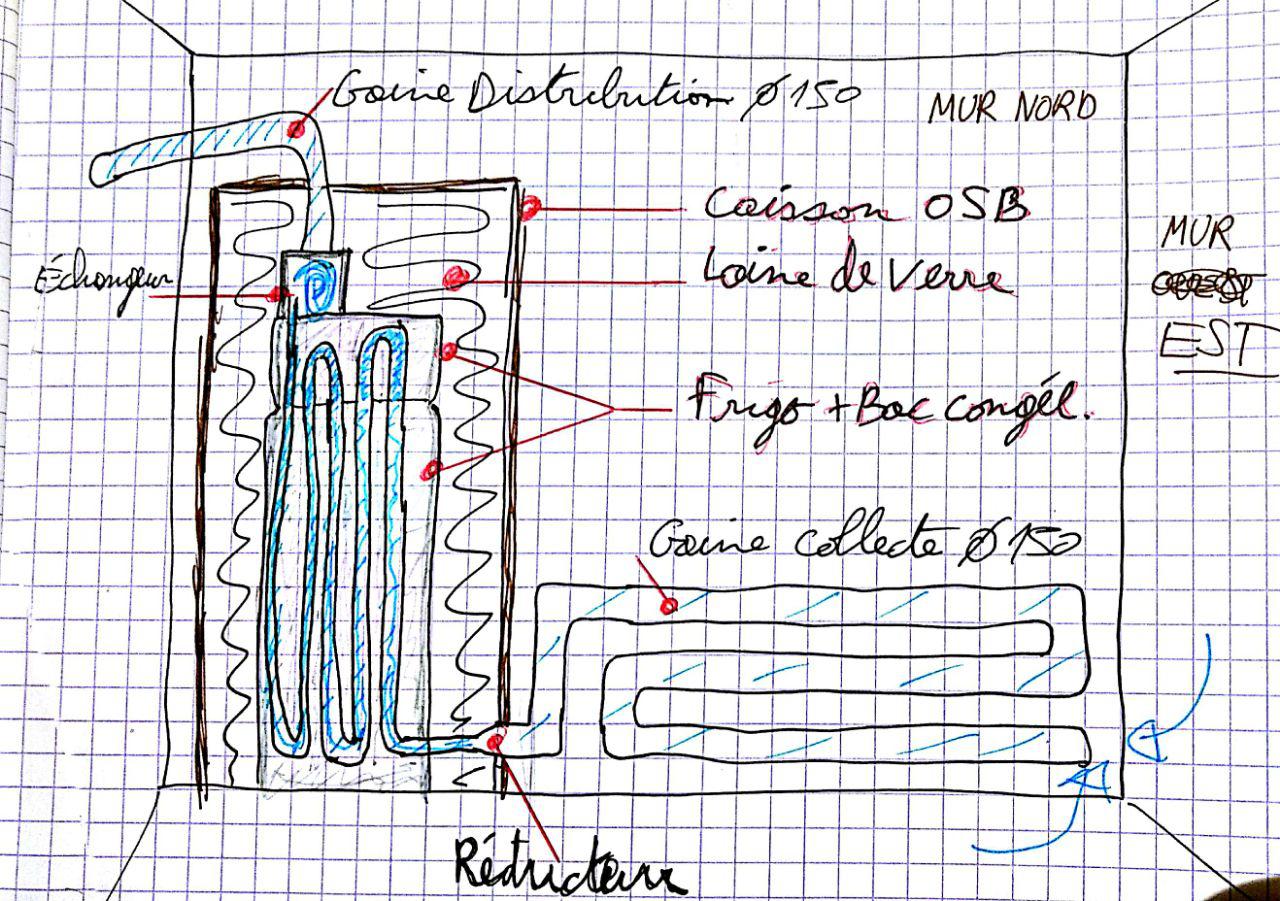 Gaine Distribution Ø 150
MUR NORD
Caisson OSB
MUR
EST
Laine de Verre
Échangeur
Frigo + Bac congél.
Gaine collecte Ø 150
Réducteur